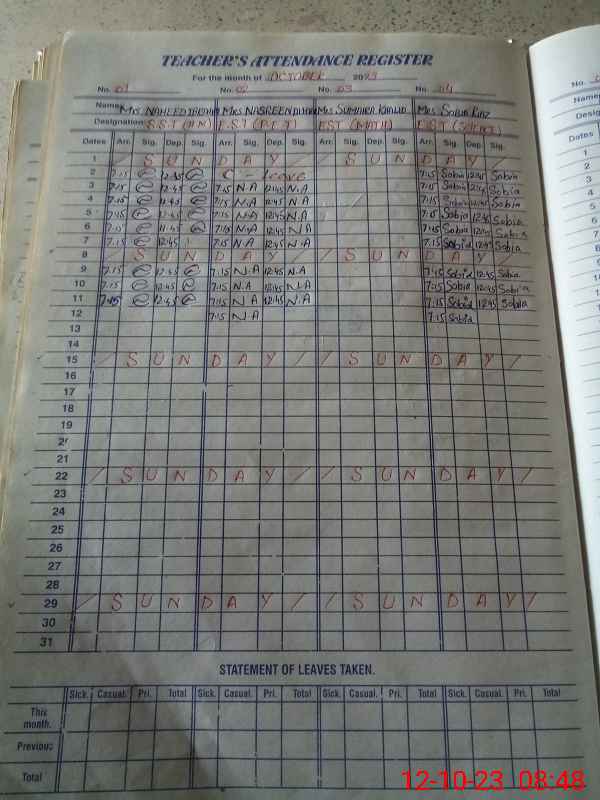 TEACHER'S ATTENDANCE REGISTER
For the month of OCTOBER 2023
No. 01 No. 02 No. 03 No. 04
Name Mrs. NAHEED Mrs NASREEN Mrs SUMAIRA KHALID Mrs. Sobia Riaz
Designation S.S.T E.S.T EST (MATH) EST
Dates Arr. Sig. Dep. Sig. Arr. Sig. Dep. Sig. Arr. Sig. Dep. Sig. Arr. Sig. Dep. Sig.
1 / S U N D A Y / / S U N D A Y /
2 7.15 12.45 C - leave 7.15 Sobia 12.45 Sobia
3 7.15 12.45 7.15 N.A 12.45 N.A 7.15 Sobia 12.45 Sobia
4 7.15 12.45 7.15 N.A 12.45 N.A 7.15 Sobia 12.45 Sobia
5 7.15 12.45 7.15 N.A 12.45 N.A 7.15 Sobia 12.45 Sobia
6 7.15 11.45 7.15 N.A 12.45 N.A 7.15 Sobia 12.45 Sobia
7 7.15 12.45 7.15 N.A 12.45 N.A 7.15 Sobia 12.45 Sobia
8 / S U N D A Y / / S U N D A Y
9 7.15 12.45 7.15 N.A 12.45 N.A Sobia 12.45 Sobia
10 7.15 12.45 7.15 N.A 12.45 N.A 7.15 Sobia 12.45 Sobia
11 7.15 12.45 7.15 N.A 12.45 N.A 7.15 Sobia 12.45 Sobia
12 7.15 N.A 7.15 Sobia
13
14
15 / S U N D A Y / / S U N D A Y /
16
17
18
19
21
22 / S U N D A Y / / S U N D A Y /
23
24
25
26
27
28
29 / S U N D A Y / / S U N D A Y /
30
31
STATEMENT OF LEAVES TAKEN.
Sick. Casual. Pri. Total Sick. Casual. Pri. Total Sick. Casual. Pri. Total Sick. Casual. Pri. Total
This month.
Previous
Total
12-10-23 08:48